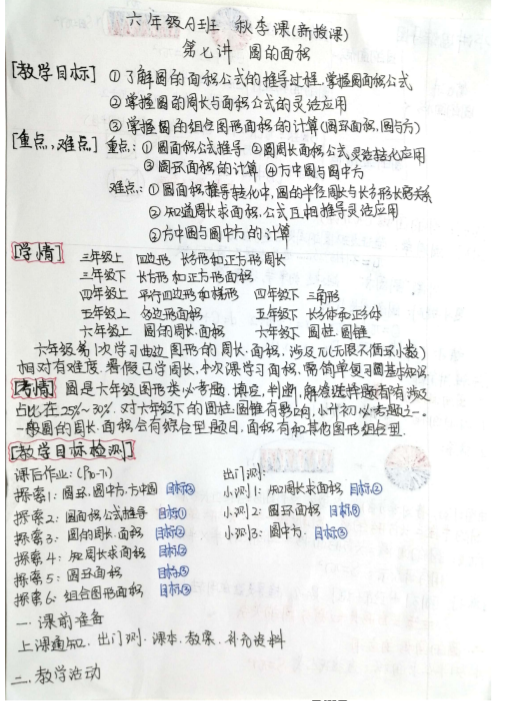 六年级A班 秋季课(新授课)
第七讲 圆的面积
[教学目标] ①了解圆的面积公式的推导过程.掌握圆面积公式
②掌握圆的周长与面积公式的灵活应用
③掌握圆的组合图形面积的计算(圆环面积,圆与方)
[重点,难点] 重点:①圆面积公式推导 ②圆周长面积公式灵活转化应用
③圆环面积的计算 ④方中圆与圆中方
难点:①圆面积推导转化中,圆的半径周长与长方形长宽关系
②知道周长求面积.公式互相推导灵活应用
③方中圆与圆中方的计算
[学情] 三年级上 四边形 长方形和正方形周长
三年级下 长方形和正方形面积
四年级上 平行四边形和梯形 四年级下 三角形
五年级上 多边形面积 五年级下 长方体和正方体
六年级上 圆的周长.面积 六年级下 圆柱.圆锥
六年级第1次学习曲边图形的周长.面积.涉及π(无限不循环小数)
相对有难度.暑假已学周长.本次课学习面积.需简单复习圆基本知识
[考情] 圆是六年级图形类必考题.填空,判断,解答选择题都有涉及
占比在25%-30%.对六年级下的圆柱圆锥有影响,小升初必考题之一.
一般圆的周长.面积会有综合型题目.面积有和其他图形组合型.
[教学目标检测]
课后作业:(P70-71) 出门测:
探索1:圆环.圆中方.方中圆 目标③ 小测1:知周长求面积 目标②
探索2:圆面积公式推导 目标① 小测2:圆环面积 目标③
探索3:圆的周长.面积 目标② 小测3:圆中方. 目标③
探索4:知周长求面积 目标②
探索5:圆环面积 目标③
探索6:组合图形面积 目标③
一.课前准备
上课通知.出门测.课本.教案.补充资料
二.教学活动